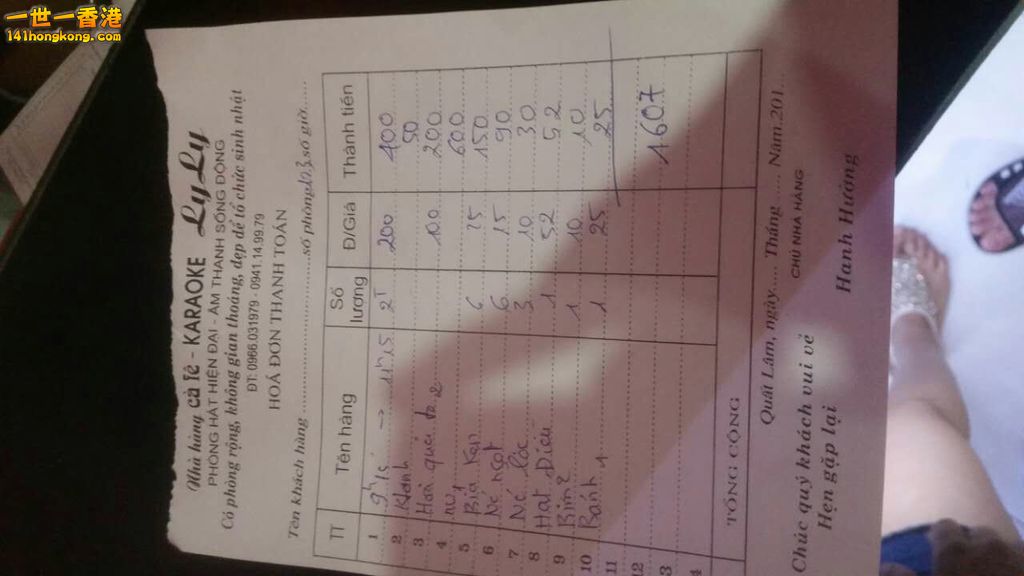 一世一香港
141hongkong.com
Nhà hàng cà fê - KARAOKE LyLy
PHÒNG HÁT HIỆN ĐẠI - ÂM THANH SỐNG ĐỘNG
Có phòng rộng, không gian thoáng, đẹp để tổ chức sinh nhật
ĐT: 0966.031979 - 0941.14.99.79
HOÁ ĐƠN THANH TOÁN
Tên khách hàng ........ số phòng ........ số giờ ........
TT Tên hàng Số lượng Đ/Giá Thành tiền
1 200 400
2 50
3 Hoa quả 10 200
4 600
5 Bia 6 25 150
6 6 15 90
7 3 10 30
8 Hat Điều 1 52 52
9 Bim 1 10 10
10 Bánh 1 25 25
11
12
13 1607
14
TỔNG CỘNG
Quất Lâm, ngày..... Tháng ..... Năm 201...
Chúc quý khách vui vẻ
Hẹn gặp lại
CHỦ NHÀ HÀNG
Hanh Hưởng